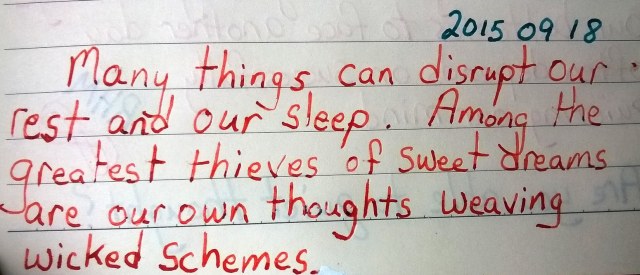 2015 09 18
Many things can disrupt our
rest and our sleep. Among the
greatest thieves of sweet dreams
are our own thoughts weaving
wicked schemes.